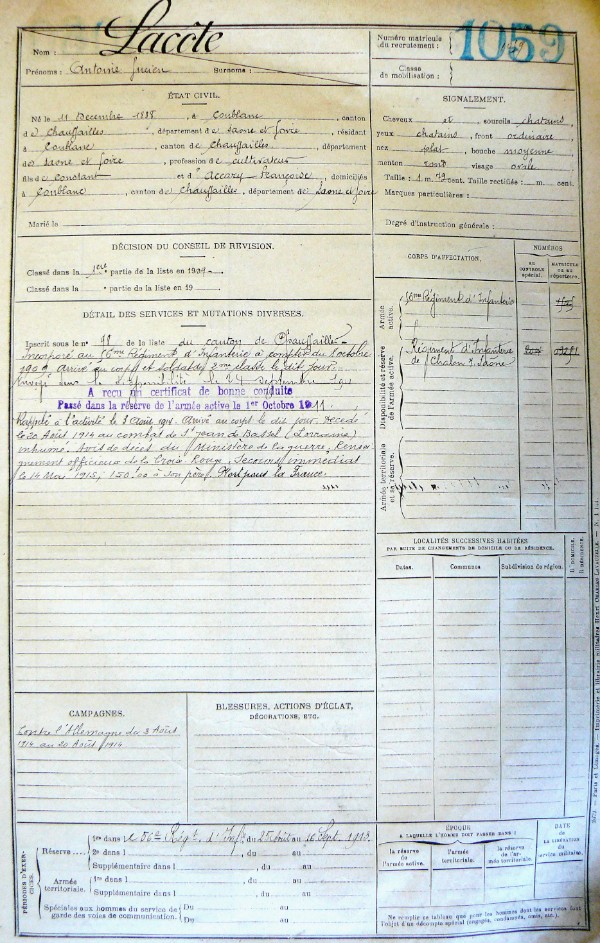 Nom : Lacôte
Prénoms : Antoine Lucien Surnoms :
Numéro matricule du recrutement : 1059
Classe de mobilisation :
ÉTAT CIVIL.
Né le 11 Décembre 1888, à Coublanc, canton
de Chauffailles, département de Saone et Loire, résidant
à Coublanc, canton de Chauffailles, département
de Saone et Loire, profession de cultivateur
fils de Constant et d'Accary Françoise, domiciliés
à Coublanc, canton de Chauffailles, département de Saone et Loire
Marié le
SIGNALEMENT.
Cheveux et sourcils chatains,
yeux chatains, front ordinaire
nez plat, bouche moyenne
menton rond visage ovale
Taille : 1 m. 72 cent. Taille rectifiée : 1 m. cent.
Marques particulières :
Degré d'instruction générale :
DÉCISION DU CONSEIL DE REVISION.
Classé dans la 1ère partie de la liste en 1909
Classé dans la partie de la liste en 19
DÉTAIL DES SERVICES ET MUTATIONS DIVERSES.
Inscrit sous le n° 48 de la liste du canton de Chauffailles
Incorporé au 56me Régiment d'Infanterie à compter du 1 octobre
1909, arrivé au corps et soldat de 2me classe le dit jour.
Envoyé la disponibilité le 24 septembre 1911
A reçu un certificat de bonne conduite
Passé dans la réserve de l'armée active le 1er Octobre 1911
Rappelé à l'activité le 3 Août 1914. Arrivé au corps le dit jour. Décédé
le 20 Août 1914 au combat de St Jean de Bassel (Lorraine)
inhumé. Avis de décès du Ministère de la guerre, Rensei
gnement officieux de la Croix Rouge. Secours immédiat
le 14 Mai 1915, 150.00 à son père. Mort pour la France.
CORPS D'AFFECTATION.
NUMÉROS
AU CONTRÔLE spécial.
MATRICULE OU AU répertoire.
Armée active.
56me Régiment d'Infanterie
Disponibilité et réserve de l'armée active.
Régiment d'Infanterie
de Chalon s. Saone
Armée territoriale et sa réserve.
LOCALITÉS SUCCESSIVES HABITÉES
PAR SUITE DE CHANGEMENTS DE DOMICILE OU DE RÉSIDENCE.
Dates. Communes Subdivision de région. D. DOMICILE. R. RÉSIDENCE.
CAMPAGNES.
Contre l'Allemagne du 3 Août
1914 au 20 Août 1914
BLESSURES, ACTIONS D'ÉCLAT,
DÉCORATIONS, ETC.
PÉRIODES D'EXERCICES.
Réserve
1re dans le 56e Régt. d'Inf. du 25 au 10 Sept. 1913.
2e dans l , du au
Supplémentaire dans l , du au
Armée territoriale.
1re dans l , du au
Supplémentaire dans l , du au
Spéciales aux hommes du service de garde des voies de communication.
Du au
Du au
ÉPOQUE
A LAQUELLE L'HOMME DOIT PASSER DANS :
la réserve de l'armée active.
l'armée territoriale.
la réserve de l'armée territoriale.
DATE DE LA LIBÉRATION du service militaire.
Ne remplir ce tableau que pour les hommes dont les services font
l'objet d'un décompte spécial (engagés, condamnés, omis, etc.).